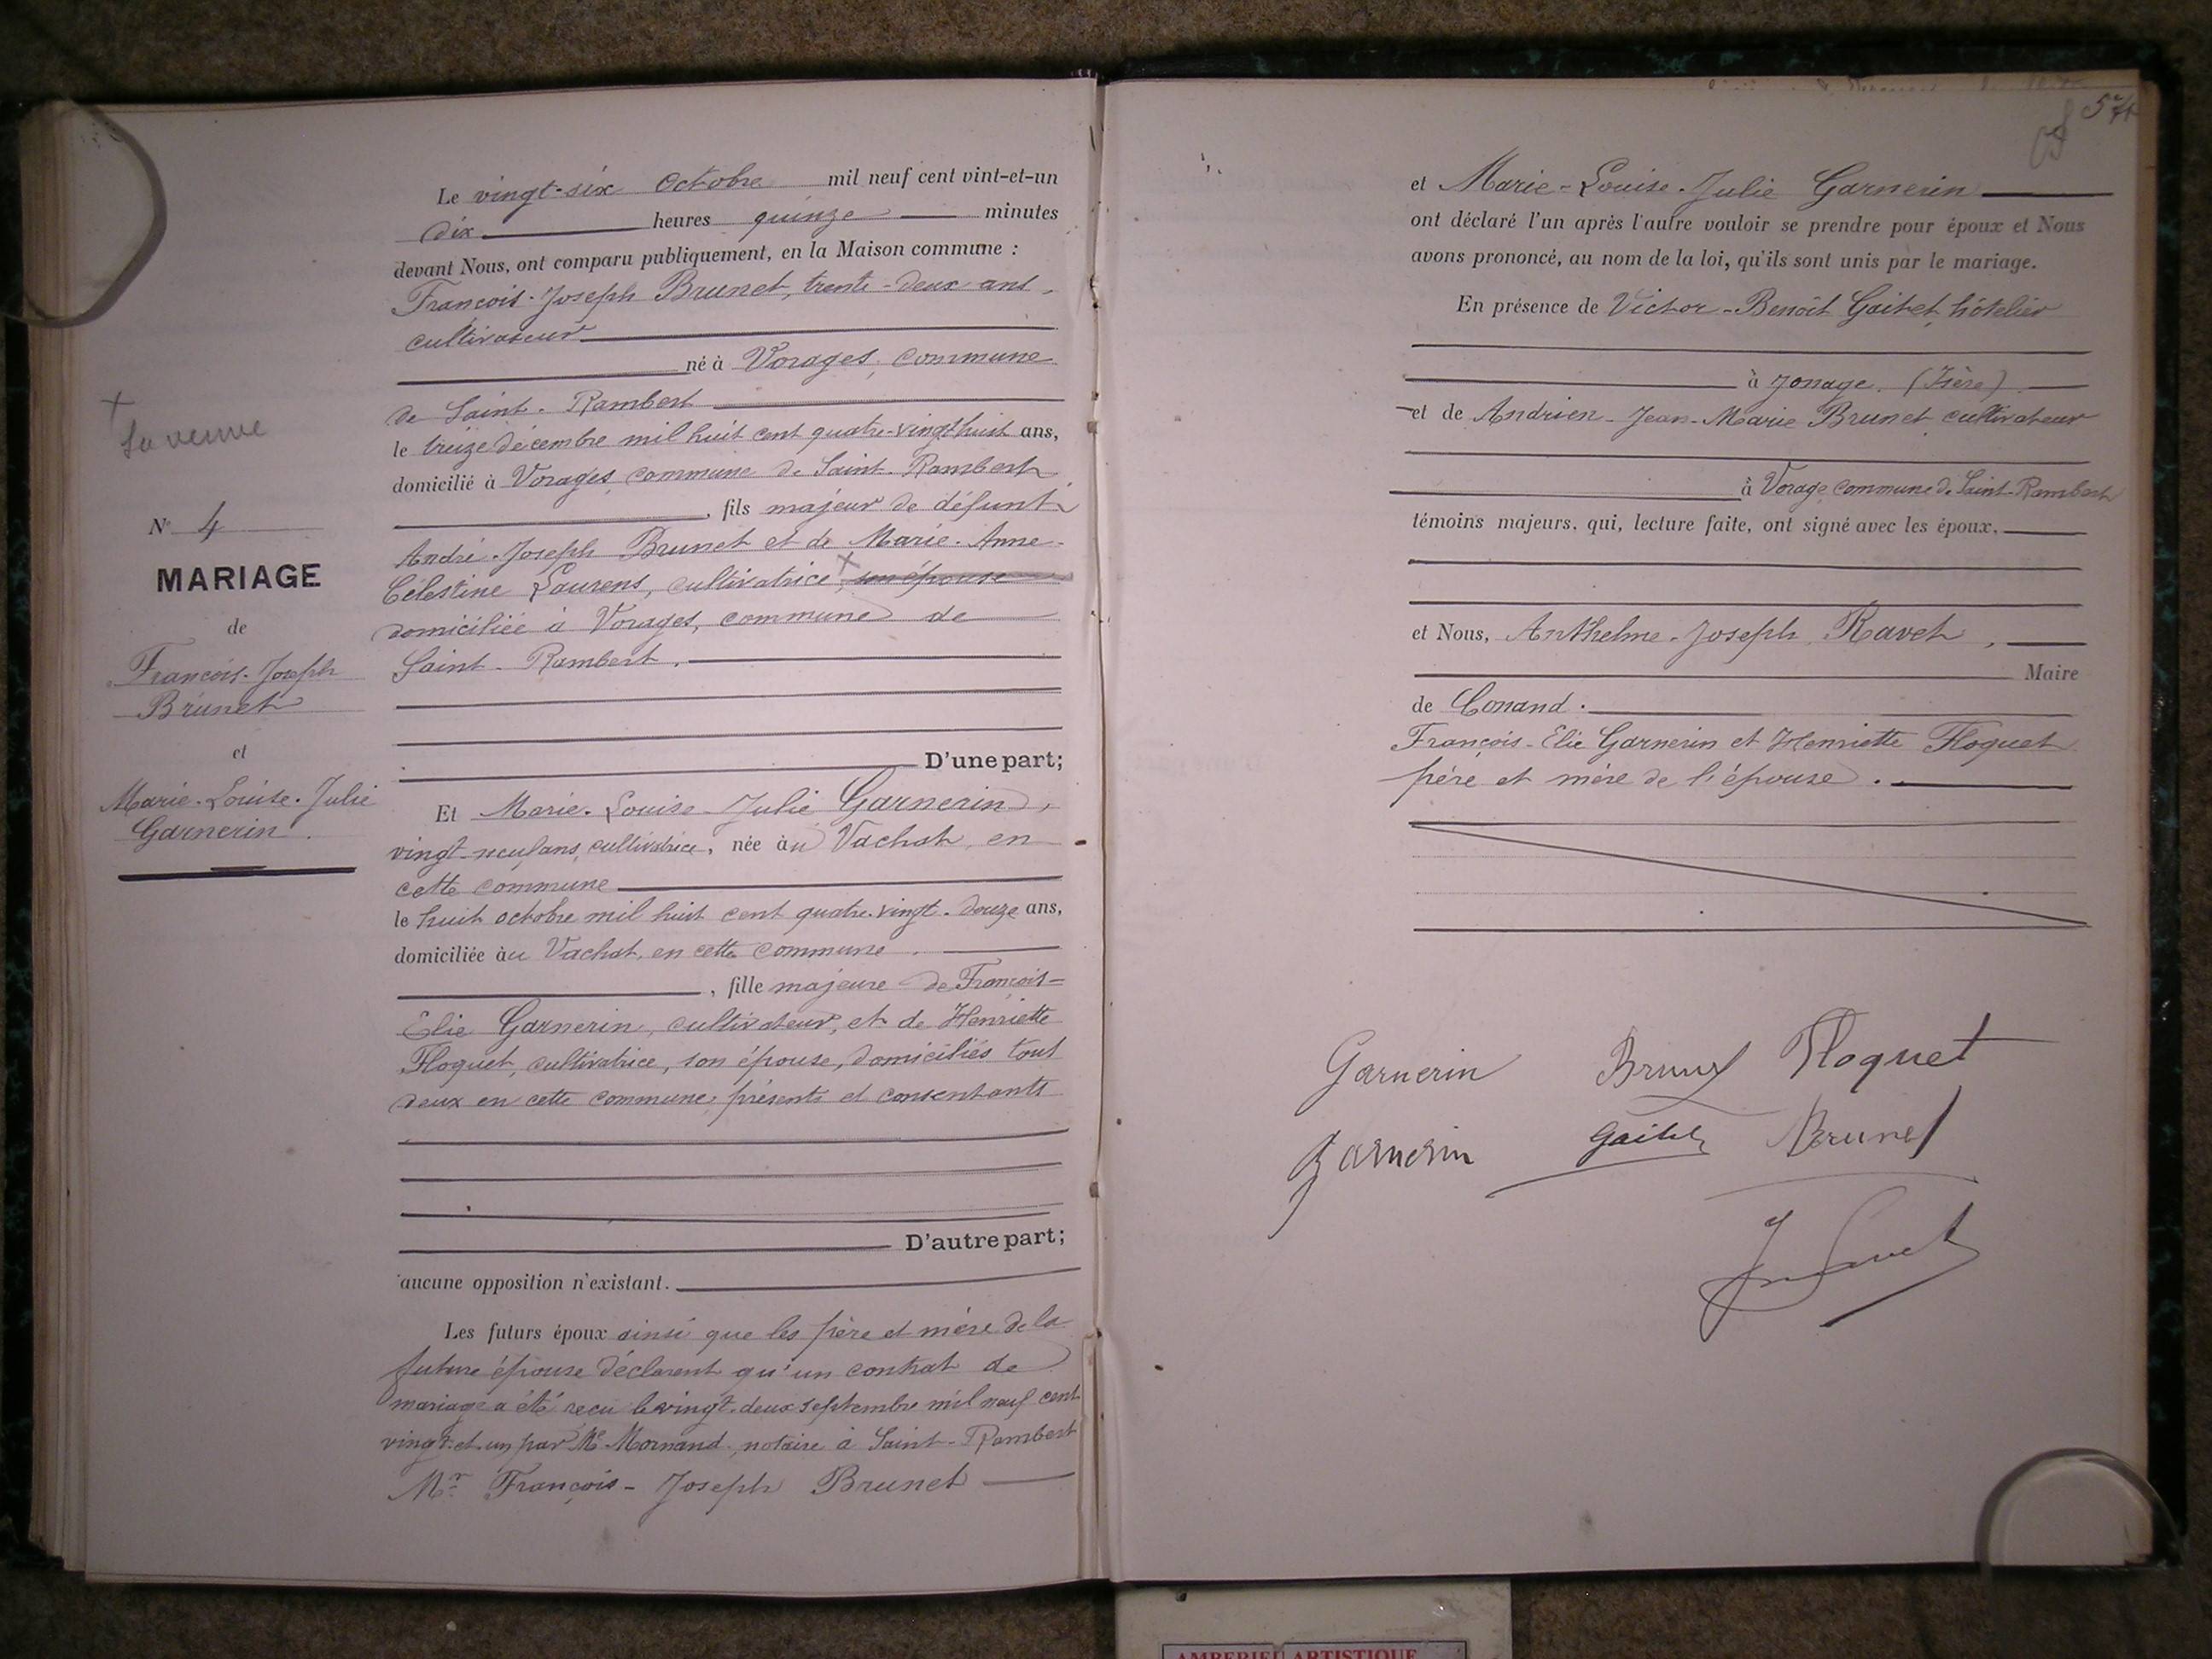 Le vingt-six Octobre mil neuf cent vint-et-un
dix heures quinze minutes
devant Nous, ont comparu publiquement, en la Maison commune :
François-Joseph Brunet, trente-deux ans,
cultivateur
né à Vorages, commune
de Saint-Rambert
le treize décembre mil huit cent quatre-vingt huit ans,
domicilié à Vorages commune de Saint-Rambert
, fils majeur de défunt
André-Joseph Brunet et de Marie-Anne-
Célestine Laurens, cultivatrice, son épouse
domiciliée à Vorages, commune de
Saint-Rambert.
D'une part;
Et Marie-Louise-Julie Garnerin,
vingt-neuf ans, cultivatrice, née au Vachat, en
cette commune
le huit octobre mil huit cent quatre-vingt-douze ans,
domiciliée au Vachat, en cette commune
, fille majeure de François-
Elie Garnerin, cultivateur, et de Henriette
Floquet, cultivatrice, son épouse, domiciliés tous
deux en cette commune, présents et consentants
D'autre part;
aucune opposition n'existant.
Les futurs époux ainsi que les père et mère de la
future épouse déclarent qu'un contrat de
mariage a été reçu le vingt-deux septembre mil neuf cent
vingt-et-un par Me Mornand, notaire à Saint-Rambert
Mr François-Joseph Brunet
+
Sa veuve
No 4
MARIAGE
de
François-Joseph
Brunet
et
Marie-Louise-Julie
Garnerin.
et Marie-Louise-Julie Garnerin
ont déclaré l'un après l'autre vouloir se prendre pour époux et Nous
avons prononcé, au nom de la loi, qu'ils sont unis par le mariage.
En présence de Victor-Benoît Gaitet, hôtelier
à Jonage (Isère)
et de Andrien-Jean-Marie Brunet cultivateur
à Vorage commune de Saint-Rambert
témoins majeurs, qui, lecture faite, ont signé avec les époux,
et Nous, Anthelme-Joseph Ravet,
Maire
de Conand.
François-Elie Garnerin et Henriette Floquet
père et mère de l'épouse.
Garnerin Brunet Floquet
Garnerin Gaitet Brunet
AMBERIEU ARTISTIQUE